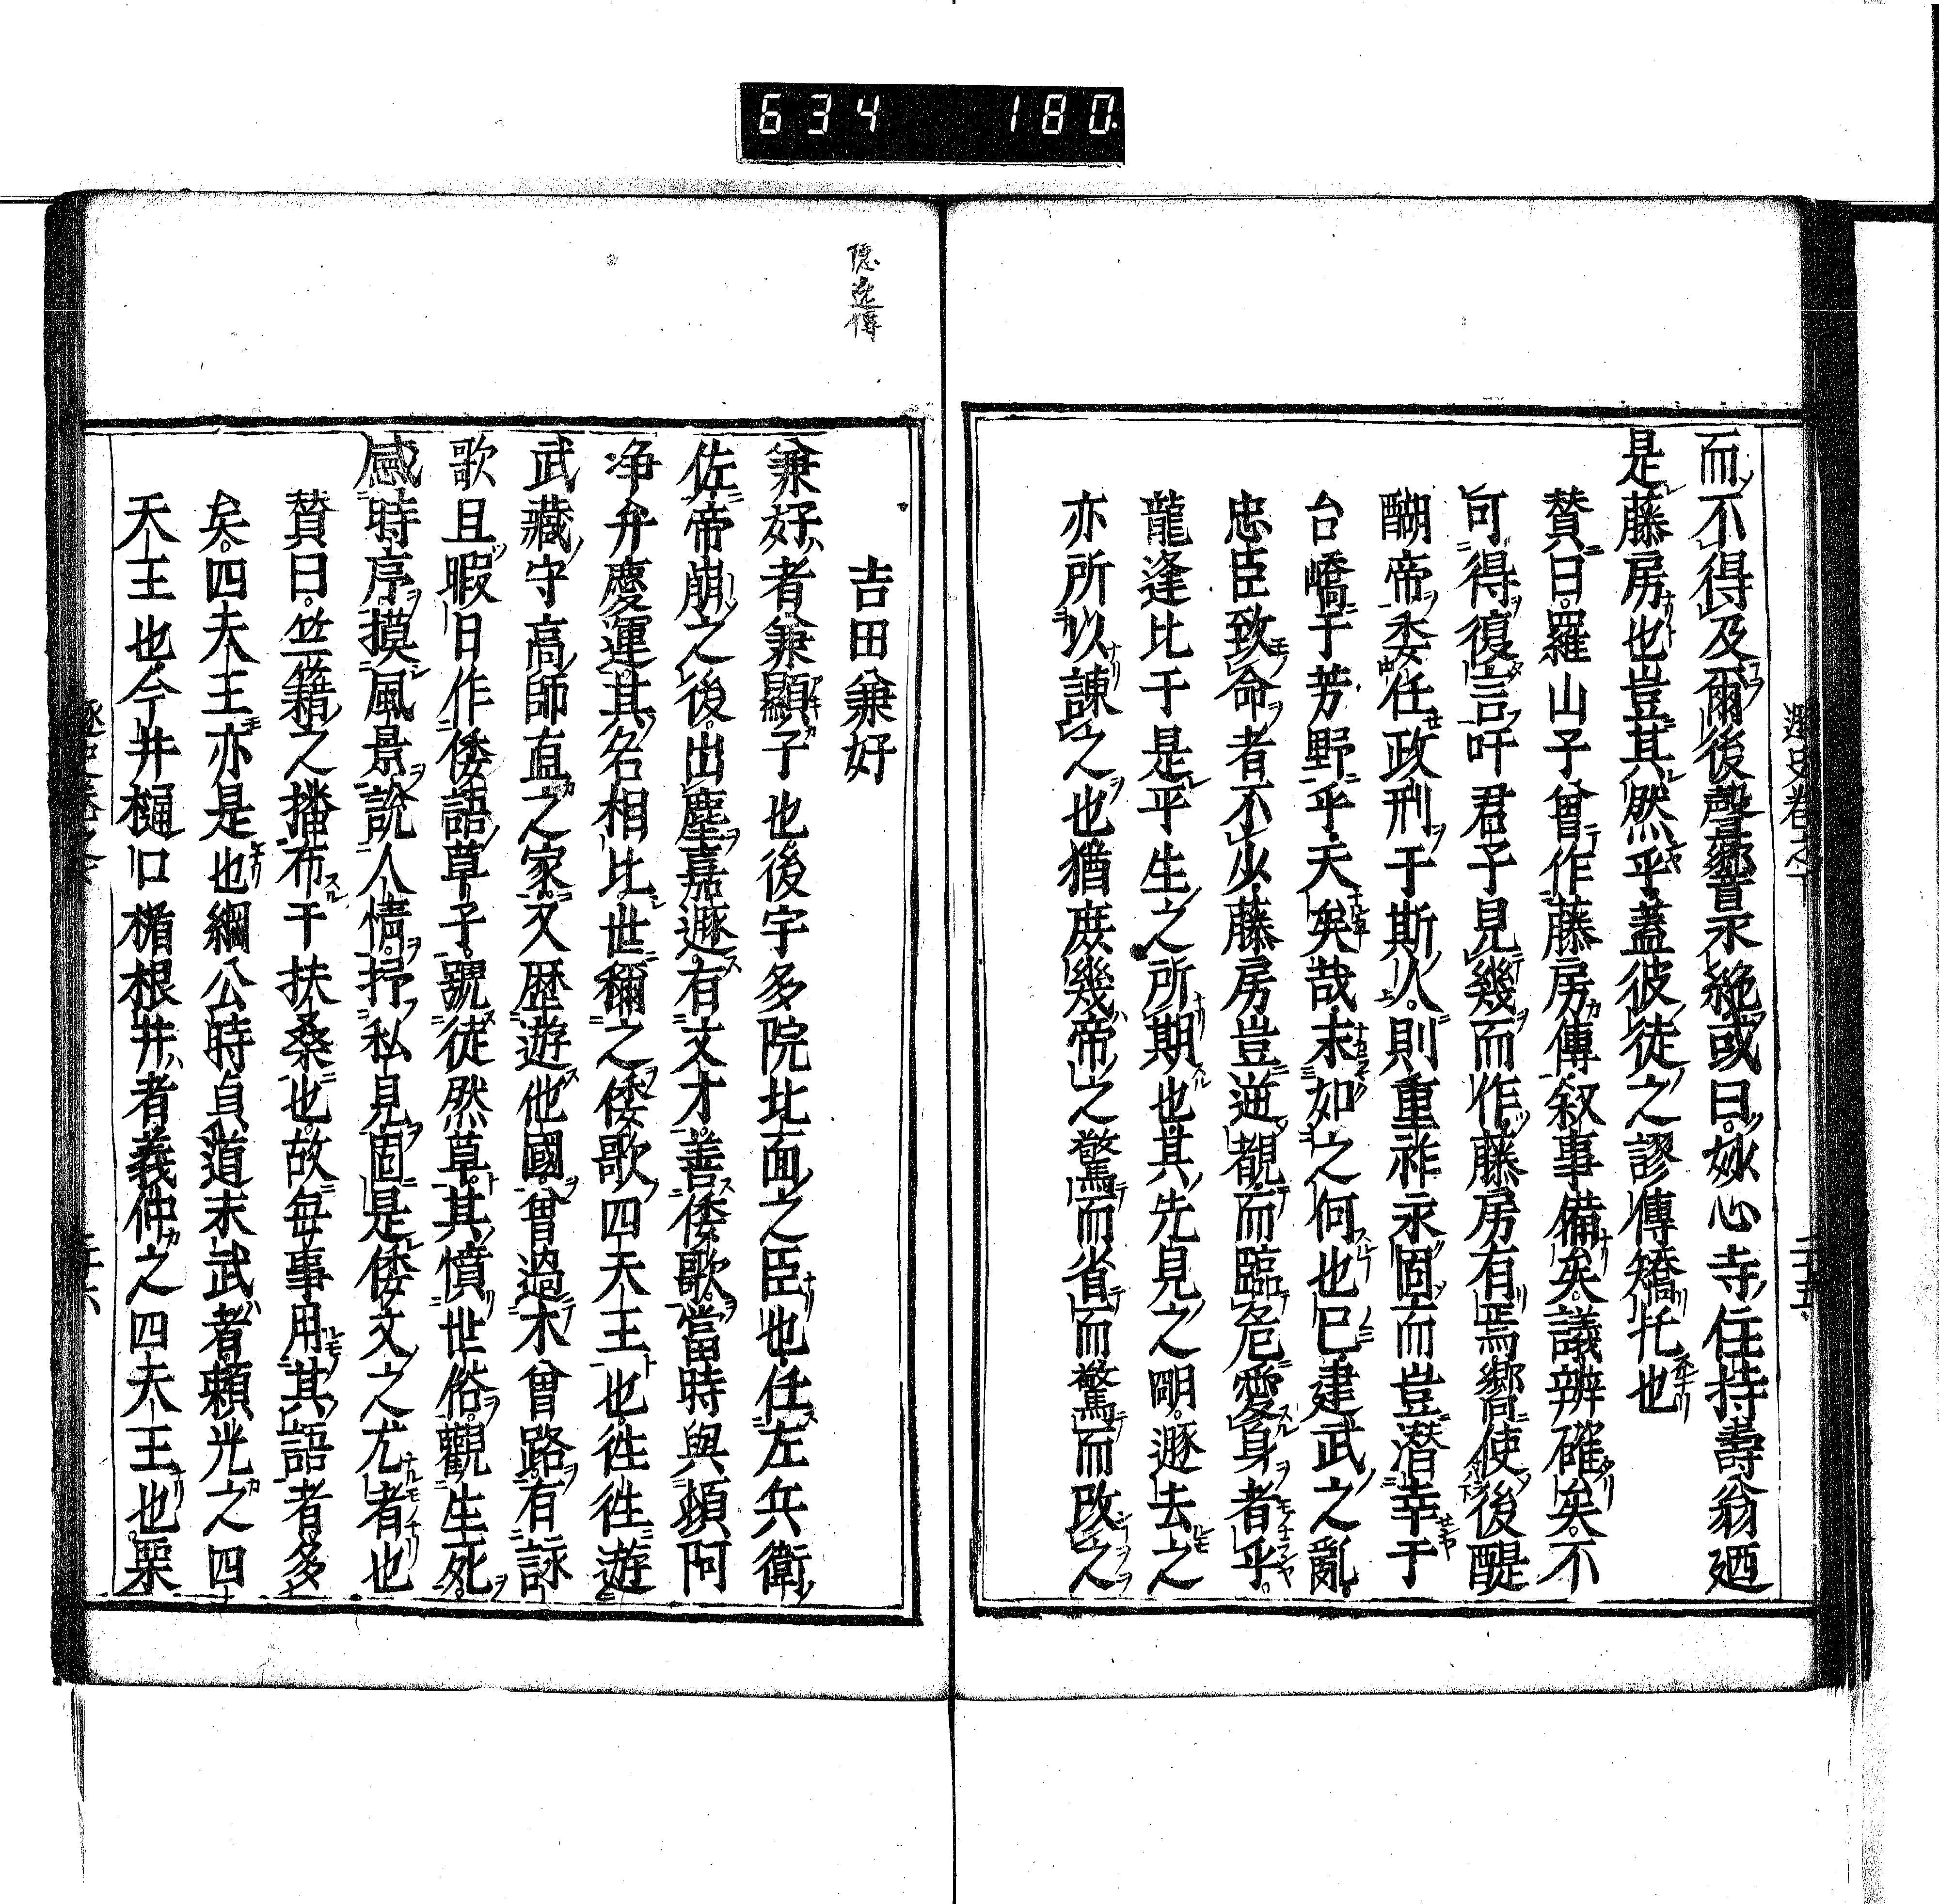 634 180.
而不得及爾後聲響永絶或曰妙心寺住持壽翁廼
是藤房也豈其然乎蓋彼徒之謬傳矯托也
賛曰羅山子曾作藤房傳叙事備矣議辨確矣不
可得復言吁君子見幾而作藤房有焉嚮使後醍
醐帝委任政刑于斯人則重祚永固而豈潜幸于
台嶠于芳野乎天矣哉末如之何也巳建武之亂
忠臣致命者不少藤房豈逆覩而臨危愛身者乎
龍逢比干是平生之所期也其先見之明遯去之
亦所以諫之也猶庶幾帝之驚而省而驚而改之
隠逸傳
吉田兼好
兼好者兼顯子也後宇多院北面之臣也任左兵衛
佐帝崩之後出塵嘉遯有文才善倭歌當時與頓阿
净弁慶運其名相比世稱之倭歌四天王也徃徃遊
武藏守高師直之家又歴遊他國曾過木曾路有詠
歌且暇日作倭語草子號徒然草其憤世俗觀生死
感時序摸風景説人情抒私見固是倭文之尤者也
賛曰竺籍之播布于扶桑也故毎事用其語者多
矣四天王亦是也綱公時貞道末武者頼光之四
天王也今井樋口楯根井者義仲之四天王也栗